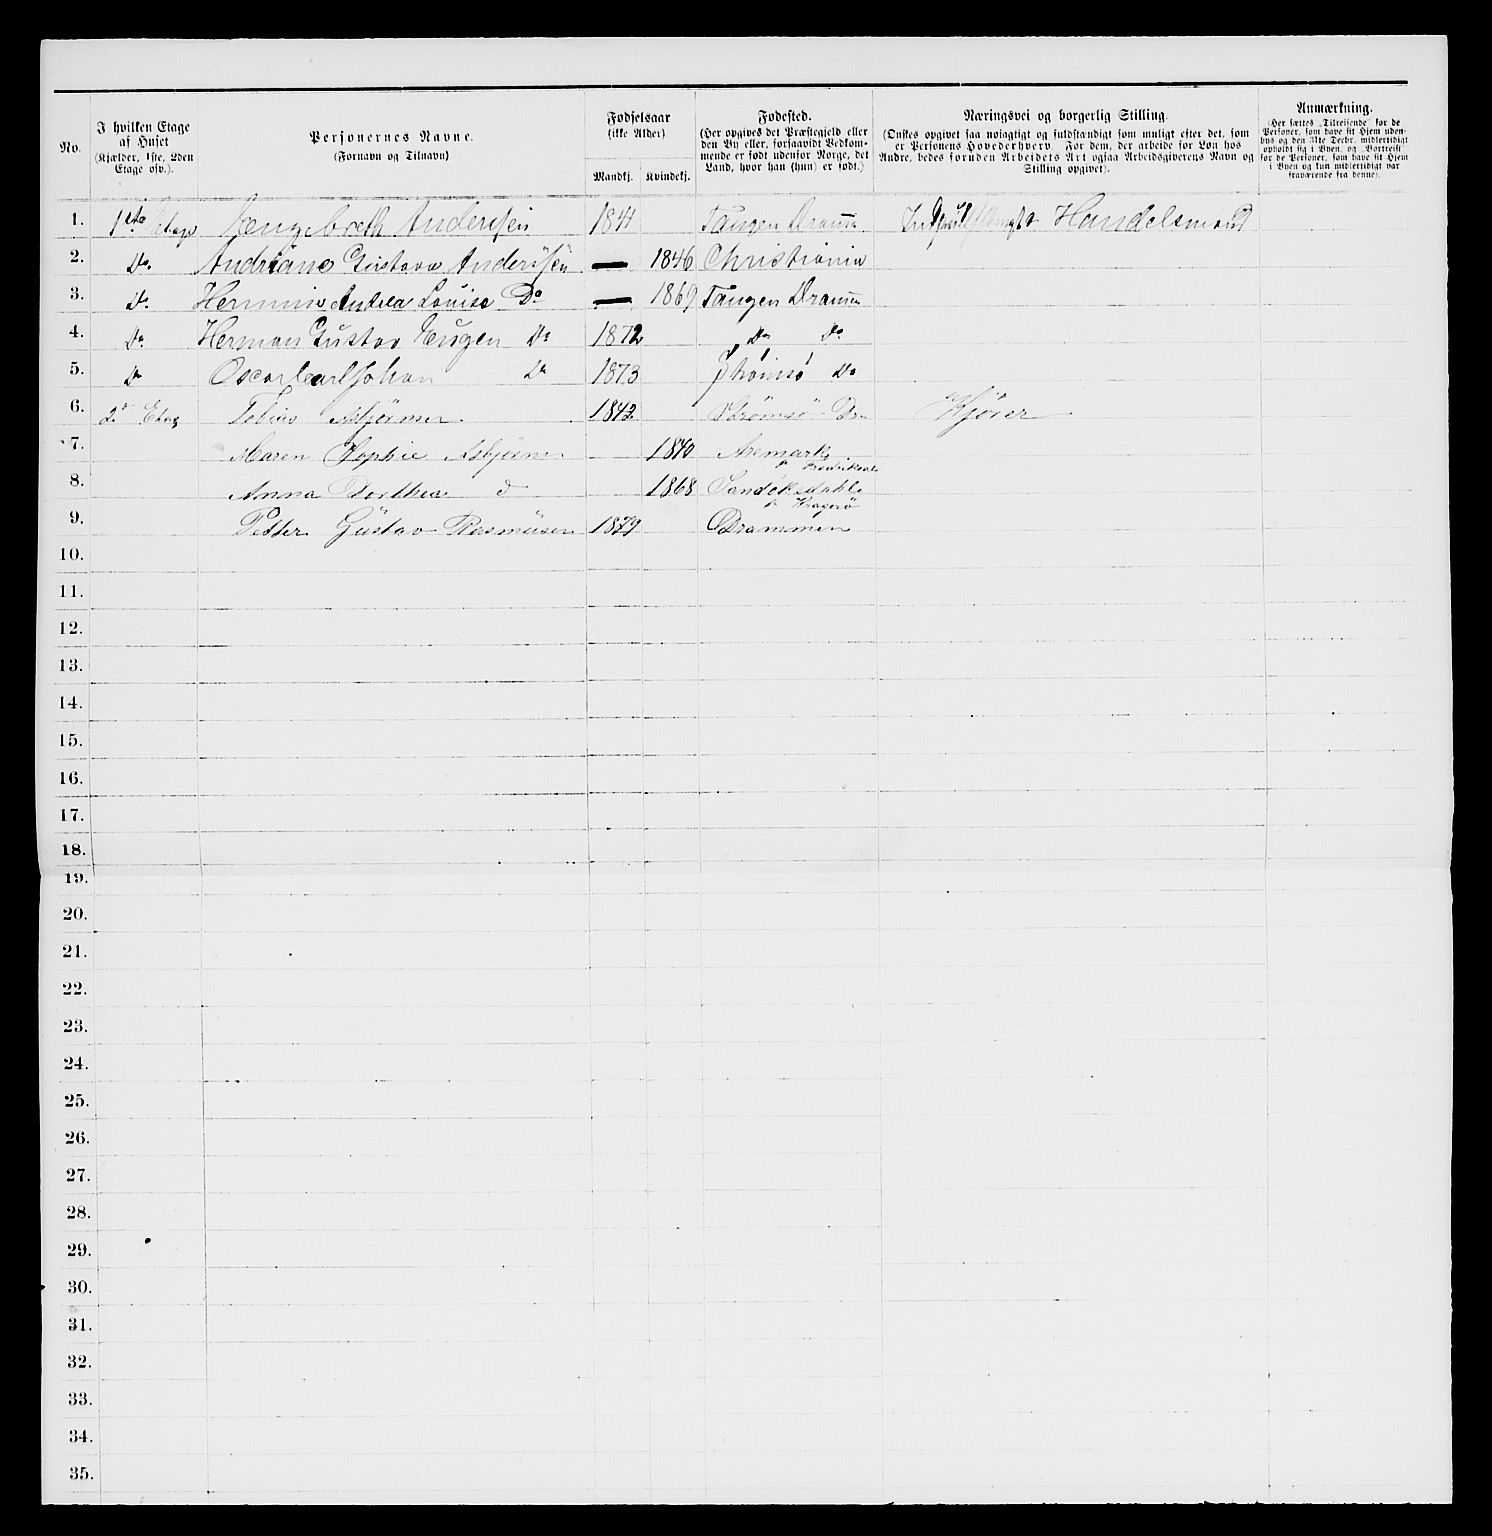 No.
I hvilken Etage af Huset
(Kjælder, 1ste, 2den Etage osv.).
Personernes Navne.
(Fornavn og Tilnavn)
Fødselsaar
(ikke Alder).
Mandkj. Kvindekj.
Fødested.
(Her opgives det Præstegjeld eller
den By eller, forsaavidt Vedkom-
mende er født udenfor Norge, det
Land, hvor han (hun) er født.)
Næringsvei og borgerlig Stilling.
(Ønskes opgivet saa nøiagtigt og fuldstændigt som muligt efter det, som
er Personens Hovederhverv. For dem, der arbeide for Løn hos
Andre, bedes foruden Arbeidets Art ogsaa Arbeidsgiverens Navn og
Stilling opgivet).
Anmærkning.
(Her sættes „Tilreisende“ for de
Personer, som have sit Hjem uden-
bys og den 31te Decbr. midlertidigt
opholdt sig i Byen, og „Bortreist“
for de Personer, som have sit Hjem
i Byen og kun midlertidigt var
fraværende fra denne).
1. 1ste Etage Engebreth Anderssen 1841 Tangen Dramn Handelsmand
2. Do. Andriane Gustava Anderssen — 1846 Christiania
3. Do. Hermine Andrea Louise Do — 1869 Tangen Dramn
4. Do. Herman Gustav Eugen Do 1872 Do Do
5. Do Oscar Carl Johan Do 1873 Strømsø Do
6. 2d Etag Tobias Asbjørnsen 1842 Strømsø Dr Kjører
7. Maren Sophie Asbjørnsen 1840 Aremark
p Fredrikshald
8. Anna Dorthea d 1868 Sandøkedahl
p Kragerø
9. Petter Gustav Rasmusen 1879 Drammen
10.
11.
12.
13.
14.
15.
16.
17.
18.
19.
20.
21.
22.
23.
24.
25.
26.
27.
28.
29.
30.
31.
32.
33.
34.
35.